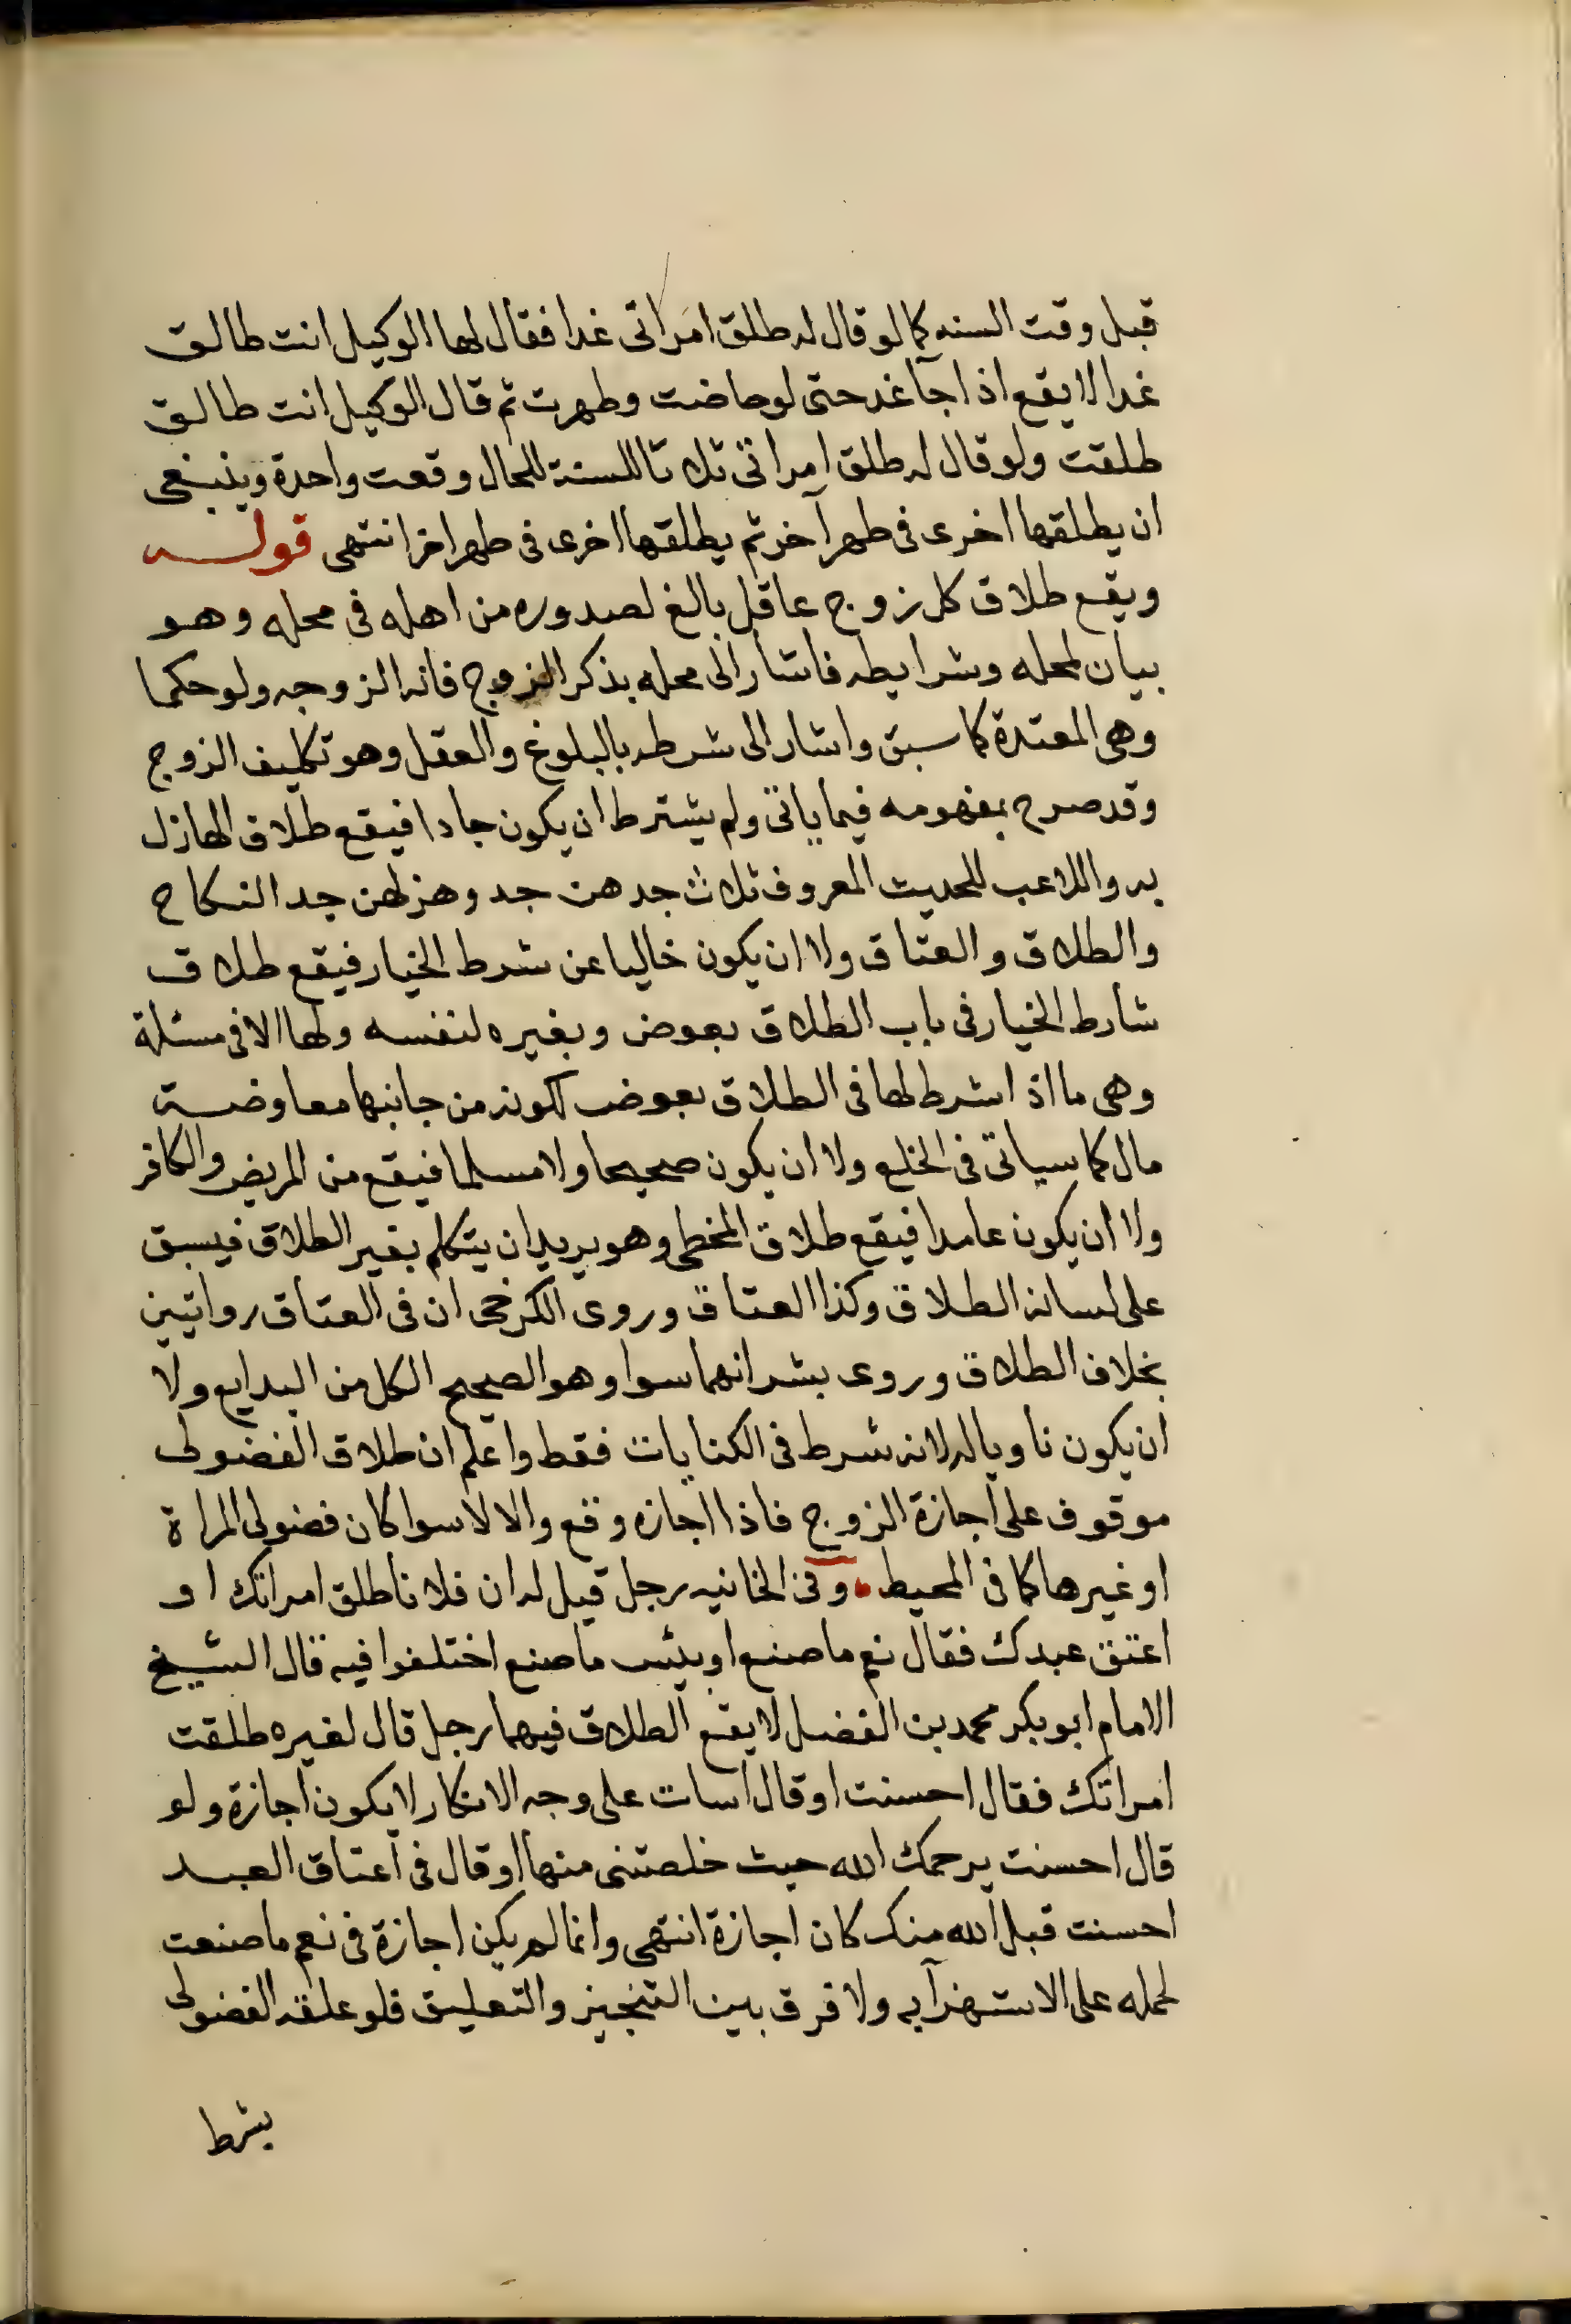 قبل وقت السنه كما لو قال له طلق امراتى غدا فقال لها الوكيل انت طالق
غدا لا يقع اذا جآ غد حتى لو حاضت وطهرت ثم قال الوكيل انت طالق
طلقت ولو قال له طلق امراتى ثلاثا للسنة للحال وقعت واحدة وينبغى
ان يطلقها اخرى فى طهر آخر ثم يطلقها اخرى فى طهر اخر انتهى قولـــه
ويقع طلاق كل زوج عاقل بالغ لصدوره من اهله فى محله وهو
بيان لمحله وشرايطه فاشار الى محله بذكر الزوج فانه الزوجه ولو حكما
وهى المعتدة كما سبق واشار الى شرطه بالبلوغ والعقل وهو تكليف الزوج
وقد صرح بمفهومه فيما ياتى ولم يشترط ان يكون جادا فيقع طلاق الهازل
به واللاعب للحديث المعروف ثلاث جدهن جد وهزلهن جد النكاح
والطلاق والعتاق ولا ان يكون خاليا عن شرط الخيار فيقع طلاق
شارط الخيار فى باب الطلاق بعوض وبغيره لنفسه ولها الا فى مسئلة
وهى ما اذا شرط لها فى الطلاق بعوض لكونه من جانبها معاوضة
مال كما سياتى فى الخلع ولا ان يكون صحيحا ولا مسلما فيقع من المريض والكافر
ولا ان يكون عامدا فيقع طلاق المخطى وهو يريد ان يتكلم بغير الطلاق فيسبق
على لسانه الطلاق وكذا العتاق وروى الكرخى ان فى العتاق روايتين
بخلاف الطلاق وروى بشر انهما سوا وهو الصحيح الكل من البدايع ولا
ان يكون ناويا له لانه شرط فى الكنايات فقط واعلم ان طلاق الفضولى
موقوف على اجازة الزوج فاذا اجازه وقع والا لا سوا كان فضولى المراة
او غيرها كما فى المحيط وفى الخانيه رجل قيل له ان فلانا طلق امراتك او
اعتق عبدك فقال نعم ما صنع او بئس ما صنع اختلفوا فيه قال الشيخ
الامام ابو بكر محمد بن الفضل لا يقع الطلاق فيهما رجل قال لغيره طلقت
امراتك فقال احسنت او قال اسات على وجه الانكار لا يكون اجازة ولو
قال احسنت يرحمك الله حيث خلصتنى منها او قال فى اعتاق العبد
احسنت قبل الله منك كان اجازة انتهى وانما لم يكن اجازة فى نعم ما صنعت
لحمله على الاستهزآ به ولا فرق بين التنجيز والتعليق فلو علقه الفضولى
بشرط